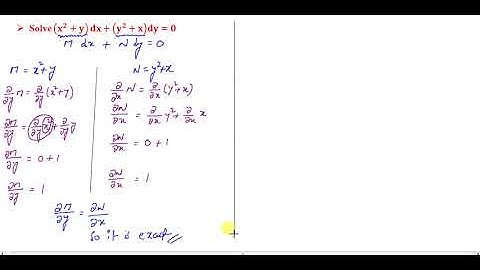 ➢ Solve (x² + y) dx + (y² + x)dy = 0
M dx + N dy = 0
M = x²+y
∂/∂y M = ∂/∂y (x²+y)
∂M/∂y = ∂/∂y x² + ∂/∂y y
∂M/∂y = 0 + 1
∂M/∂y = 1
N = y²+x
∂/∂x N = ∂/∂x (y²+x)
∂N/∂x = ∂/∂x y² + ∂/∂x x
∂N/∂x = 0 + 1
∂N/∂x = 1
∂M/∂y = ∂N/∂x
So it is exact